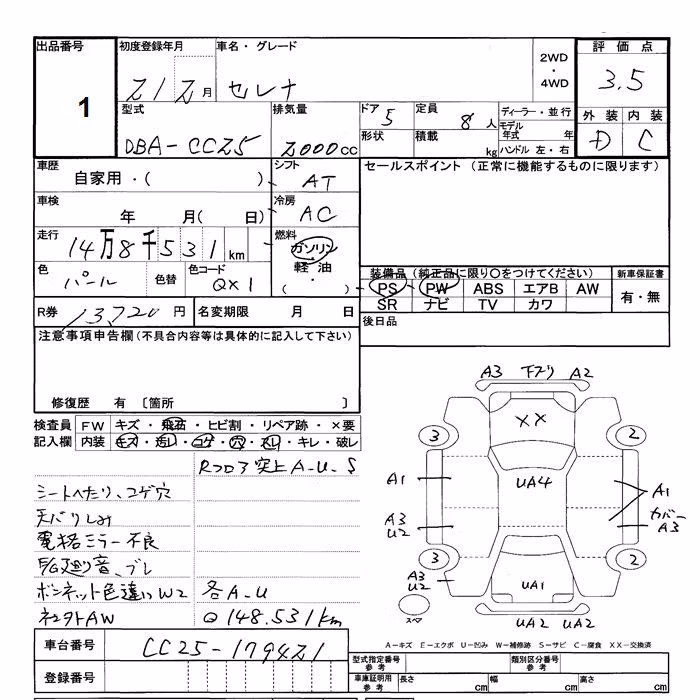 出品番号
1
初度登録年月
21 2 月
車名・グレード
セレナ
2WD
・
4WD
評価点
3.5
外装 内装
D C
型式
DBA-CC25
排気量
2000cc
ドア 5
形状
定員 8人
積載 kg
ディーラー・並行
モデル年式 年
ハンドル 左・右
車歴
自家用・( )
シフト
AT
セールスポイント (正常に機能するものに限ります)
車検
年 月( 日)
冷房
AC
走行
14万8千531km
燃料
ガソリン
・
軽油
( )
色
パール
色替
色コード
QX1
装備品(純正品に限り○をつけてください)
PS PW ABS エアB AW
SR ナビ TV カワ
新車保証書
有・無
R券 13,720円
名変期限 月 日
後日品
注意事項申告欄(不具合内容等は具体的に記入して下さい)
修復歴 有 〔箇所 〕
検査員 FW キズ・飛石・ヒビ割・リペア跡・×要
記入欄 内装 キズ・汚レ・コゲ・穴・スレ・キレ・破レ
Rフロア突上A-U-S
シートへたり、コゲ穴
天バリしみ
電格ミラー不良
E/G廻り音、ブレ
ボンネット色違いW2 各A-U
社外AW Q148.531km
A3 下ブリ A2
XX
3 2
A1 UA4 A1
A3
U2
カバー
A3
3 2
A3
U2
UA1
スペア
UA2 UA2
A-キズ E-エクボ U-凹み W-補修跡 S-サビ C-腐食 XX-交換済
車台番号 CC25-179421
登録番号
型式指定番号
参考
類別区分番号
参考
車庫証明用
参考
長さ cm 幅 cm 高さ cm